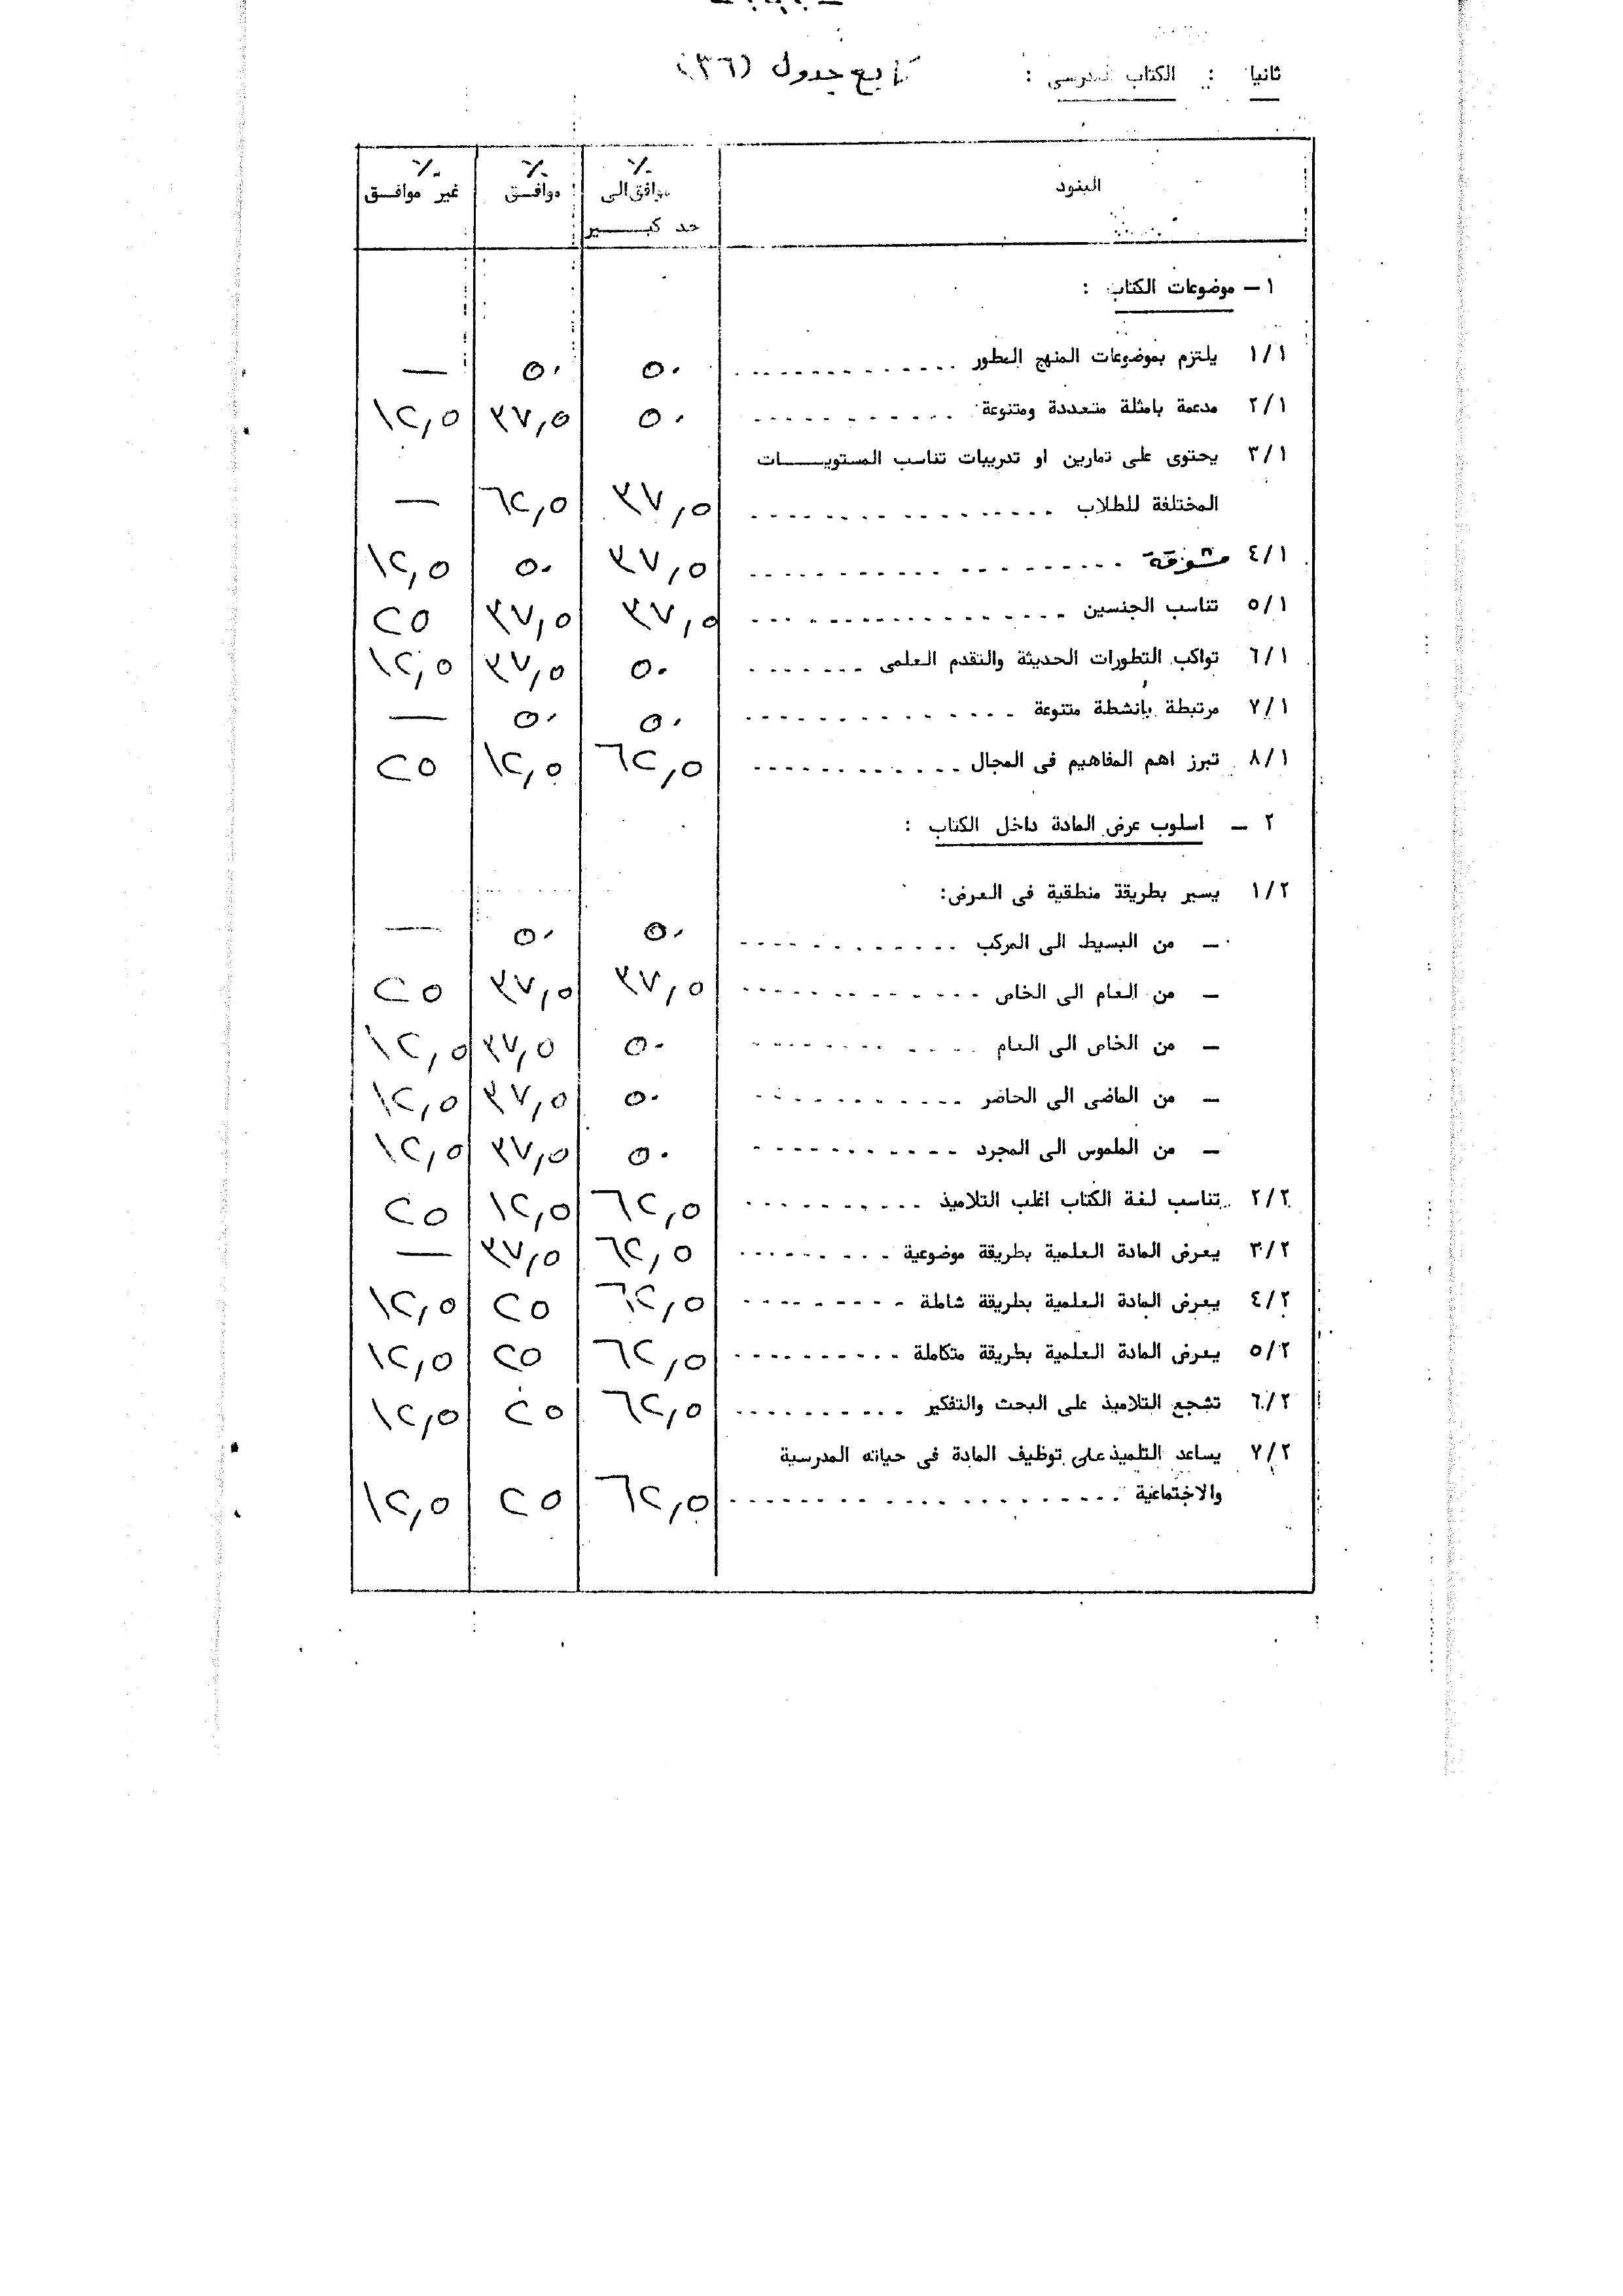 ثانيا : الكتاب المدرسى : تابع جدول (٣٦)
البنود ٪ موافق الى حد كبـــير ٪ موافـــق ٪ غير موافـــق
١ – موضوعات الكتاب :
١/١ يلتزم بموضوعات المنهج المطور ............. ٥٠ ٥٠ —
٢/١ مدعمة بامثلة متعددة ومتنوعة ............ ٥٠ ٣٧,٥ ١٢,٥
٣/١ يحتوى على تمارين او تدريبات تناسب المستويــــات
المختلفة للطلاب ................. ٣٧,٥ ٦٢,٥ —
٤/١ مشوقة ................. ٣٧,٥ ٥٠ ١٢,٥
٥/١ تناسب الجنسين ................. ٣٧,٥ ٣٧,٥ ٢٥
٦/١ تواكب التطورات الحديثة والتقدم العلمى ....... ٥٠ ٣٧,٥ ١٢,٥
٧/١ مرتبطة بانشطة متنوعة .............. ٥٠ ٥٠ —
٨/١ تبرز اهم المفاهيم فى المجال ............ ٦٢,٥ ١٢,٥ ٢٥
٢ – اسلوب عرض المادة داخل الكتاب :
١/٢ يسير بطريقة منطقية فى العرض:
– من البسيط الى المركب ............ ٥٠ ٥٠ —
– من العام الى الخاص ............. ٣٧,٥ ٣٧,٥ ٢٥
– من الخاص الى العام ............ ٥٠ ٣٧,٥ ١٢,٥
– من الماضى الى الحاضر ........... ٥٠ ٣٧,٥ ١٢,٥
– من الملموس الى المجرد ........... ٥٠ ٣٧,٥ ١٢,٥
٢/٢ تناسب لغة الكتاب اغلب التلاميذ .......... ٦٢,٥ ١٢,٥ ٢٥
٣/٢ يعرض المادة العلمية بطريقة موضوعية ......... ٦٢,٥ ٣٧,٥ —
٤/٢ يعرض المادة العلمية بطريقة شاملة ......... ٦٢,٥ ٢٥ ١٢,٥
٥/٢ يعرض المادة العلمية بطريقة متكاملة .......... ٦٢,٥ ٢٥ ١٢,٥
٦/٢ تشجع التلاميذ على البحث والتفكير .......... ٦٢,٥ ٢٥ ١٢,٥
٧/٢ يساعد التلميذ على توظيف المادة فى حياته المدرسية
والاجتماعية .................... ٦٢,٥ ٢٥ ١٢,٥